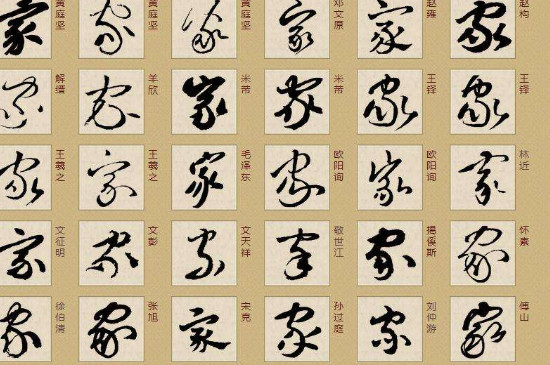 家 黄庭坚
家 黄庭坚
家 黄庭坚
家 邓文原
家 赵雍
家 赵构
家 解缙
家 羊欣
家 米芾
家 米芾
家 王铎
家 王铎
家 王羲之
家 王羲之
家 毛泽东
家 欧阳询
家 欧阳询
家 林近
家 文征明
家 文彭
家 文天祥
家 敬世江
家 揭傒斯
家 怀素
家 徐伯清
家 张旭
家 宋克
家 孙过庭
家 刘仲游
家 傅山